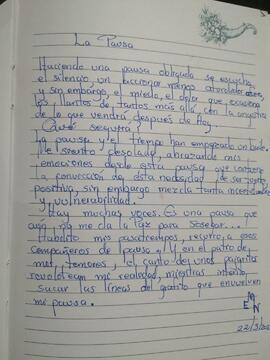 La Pausa
Haciendo una pausa obligada se escucha
el silencio, un accionar menos atorbellado
y sin embargo, el miedo, el dolor que ocasiona
los llantos de tantos más allá con la angustia
de lo que vendrá después de Hoy.
Qué seguirá?
La pausa y el tiempo han empezado un baile.
Me siento desolada, abrazando mis
emociones desde esta pausa que conserva
la convicción de esta necesidad de ser
positivo, sin embargo mezcla tanta incertidumbre
y vulnerabilidad.
Hay muchas voces. Es una pausa que
aún no me da la Paz para Sosegar...
Habilito mis pasatiempos, respiro, a esos
compañeros de pausa y en el patio de
mot, temores, el canto de unos pajaritos
revolotean mi realidad, mientras intento,
surcar las líneas del gratito que envuelven
mi pausa.
E M N
22/3/20